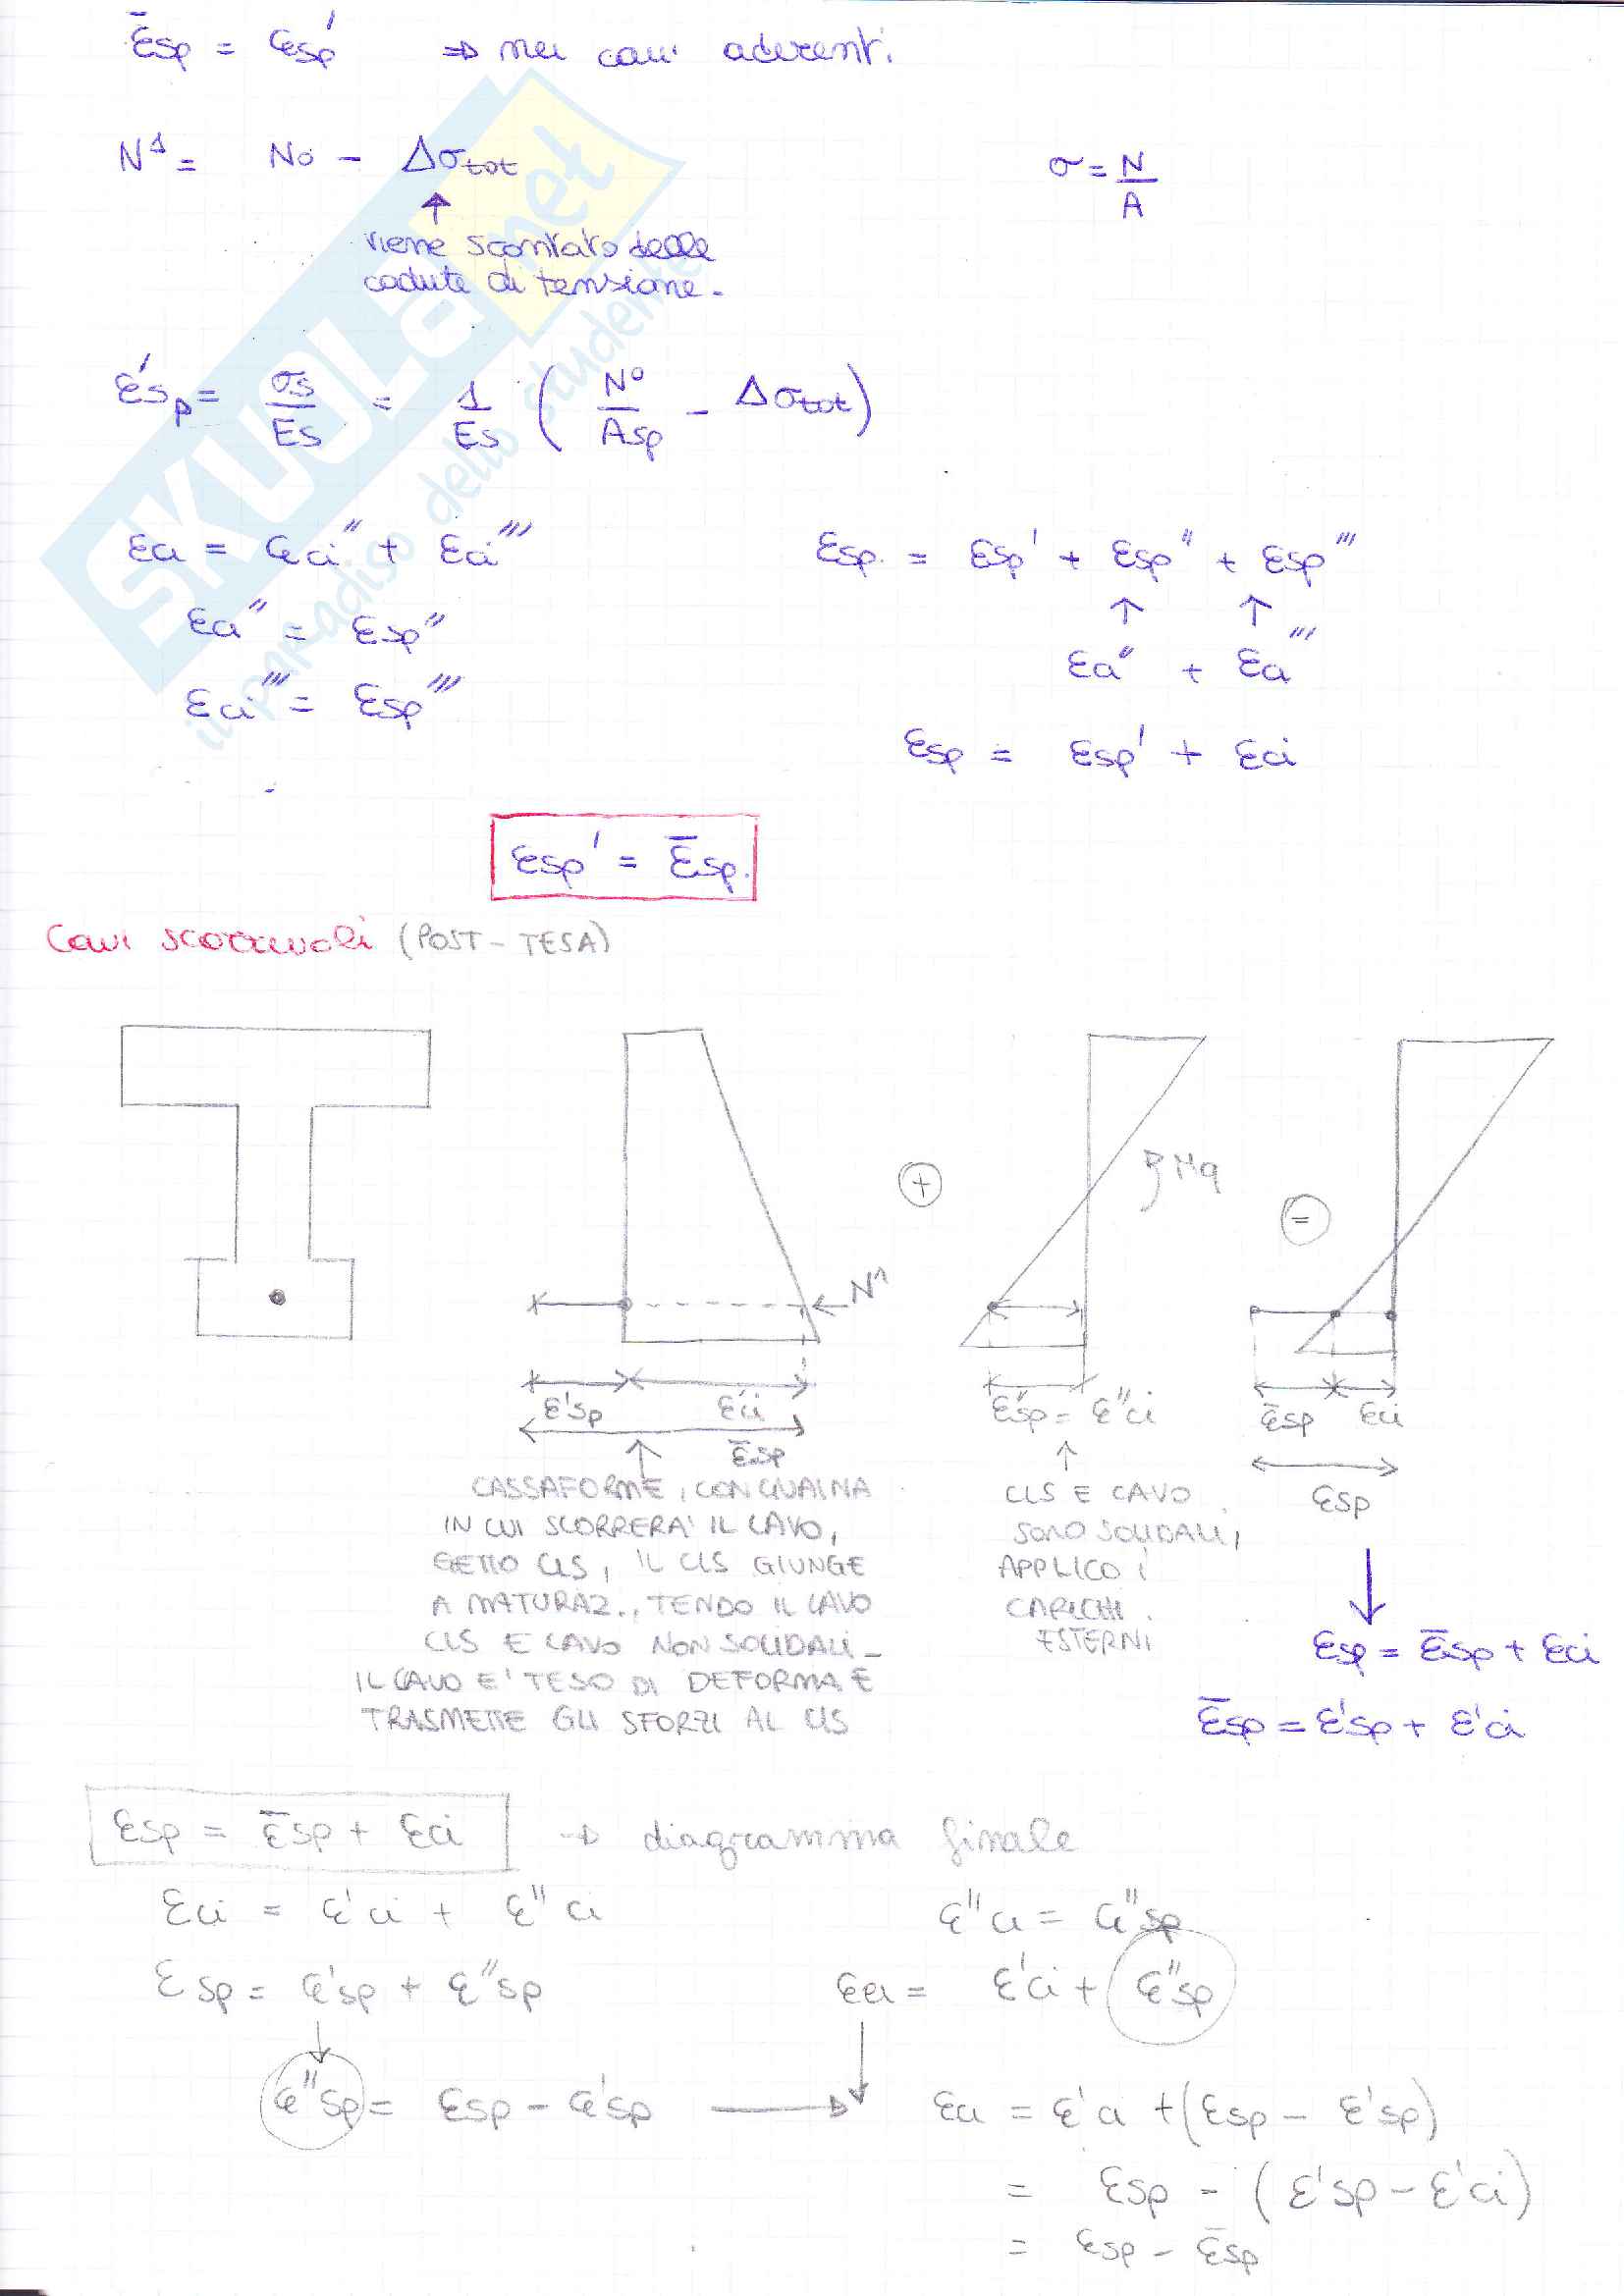 ε̄sp = εsp' ⇒ nei cavi aderenti.
N¹ = No - Δσtot
σ = N/A
viene scontato delle
cadute di tensione.
ε'sp = σs/Es = 1/Es (N°/Asp - Δσtot)
εci = εci'' + εci'''
εsp. = εsp' + εsp'' + εsp'''
εci'' = εsp''
↑ ↑
εci'' + εci'''
εci''' = εsp'''
εsp = εsp' + εci
εsp' = ε̄sp.
Cavi scorrevoli (POST-TESA)
+
Mq
=
N¹
ε'sp ε'ci
ε̄sp
ε''sp = ε''ci
ε̄sp εci
εsp
CASSAFORME, CON GUAINA
IN CUI SCORRERA' IL CAVO,
GETTO CLS, IL CLS GIUNGE
A MATURAZ., TENDO IL CAVO
CLS E CAVO NON SOLIDALI-
IL CAVO E' TESO DI DEFORMA E
TRASMETTE GLI SFORZI AL CLS
CLS E CAVO
SONO SOLIDALI,
APPLICO I
CARICHI
ESTERNI
εsp = ε̄sp + εci
ε̄sp = ε'sp + ε'ci
εsp = ε̄sp + εci → diagramma finale
εci = ε'ci + ε''ci
ε''ci = ε''sp
εsp = ε'sp + ε''sp
εci = ε'ci + ε''sp
ε''sp = εsp - ε'sp → εci = ε'ci + (εsp - ε'sp)
= εsp - (ε'sp - ε'ci)
= εsp - ε̄sp
SKUOLA.net
il paradiso dello studente